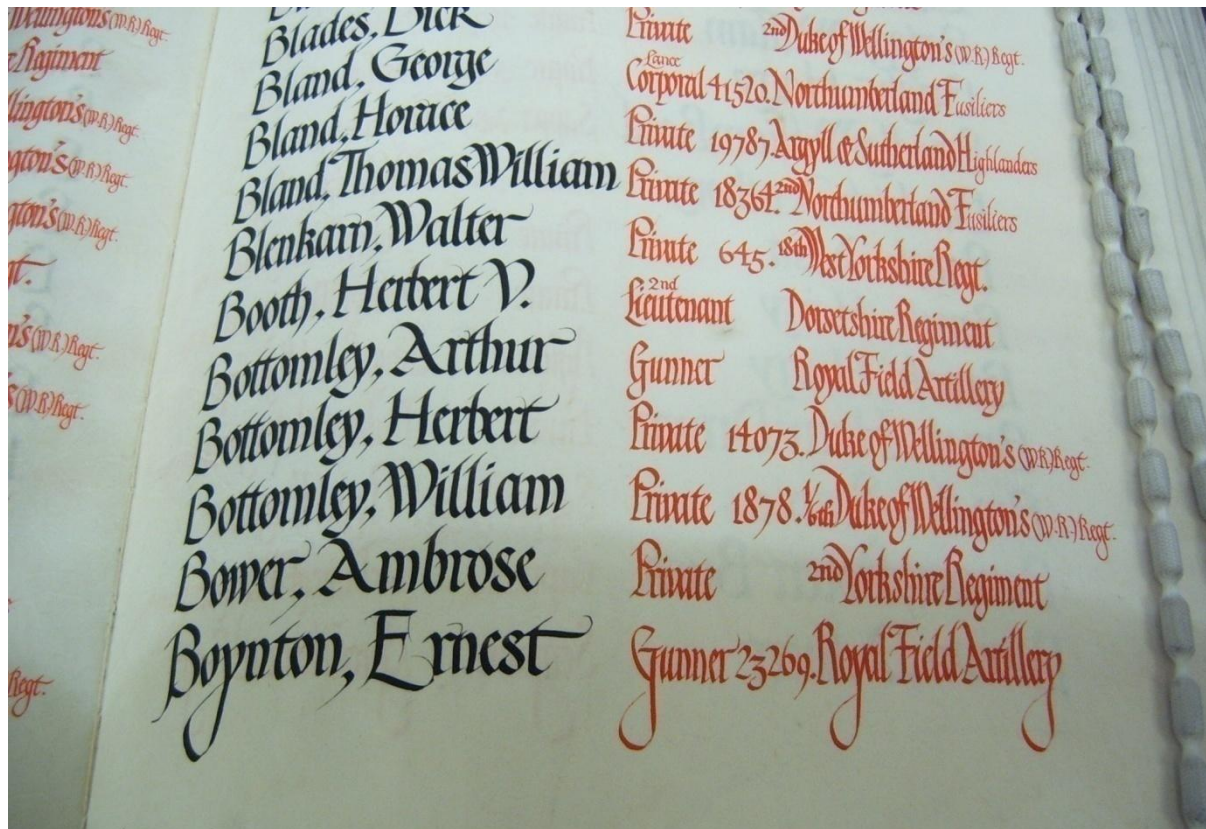 Wellington's (W.R.) Regt.
Regiment
llington's (W.R.) Regt.
ngton's (W.R.) Regt.
gton's (W.R.) Regt.
n's (W.R.) Regt.
's (W.R.) Regt.
Regt.
Blades, Dick Private 2nd Duke of Wellington's (W.R.) Regt.
Bland, George Lance Corporal 41520. Northumberland Fusiliers
Bland, Horace Private 19787. Argyll & Sutherland Highlanders
Bland, Thomas William Private 18364. 2nd Northumberland Fusiliers
Blenkarn, Walter Private 645. 18th West Yorkshire Regt.
Booth, Herbert V. 2nd Lieutenant Dorsetshire Regiment
Bottomley, Arthur Gunner Royal Field Artillery
Bottomley, Herbert Private 14073. Duke of Wellington's (W.R.) Regt.
Bottomley, William Private 1878. 1/6th Duke of Wellington's (W.R.) Regt.
Bower, Ambrose Private 2nd Yorkshire Regiment
Boynton, Ernest Gunner 23269. Royal Field Artillery